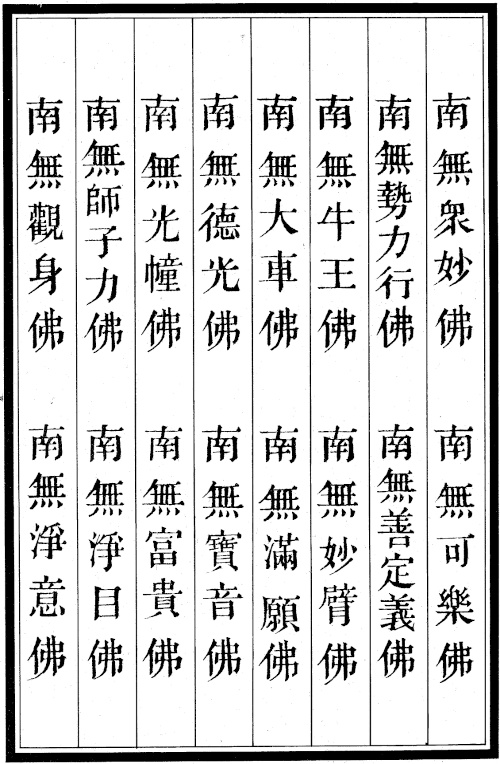 南無衆妙佛 南無可樂佛
南無勢力行佛 南無善定義佛
南無牛王佛 南無妙臂佛
南無大車佛 南無滿願佛
南無德光佛 南無寶音佛
南無光幢佛 南無富貴佛
南無師子力佛 南無淨目佛
南無觀身佛 南無淨意佛